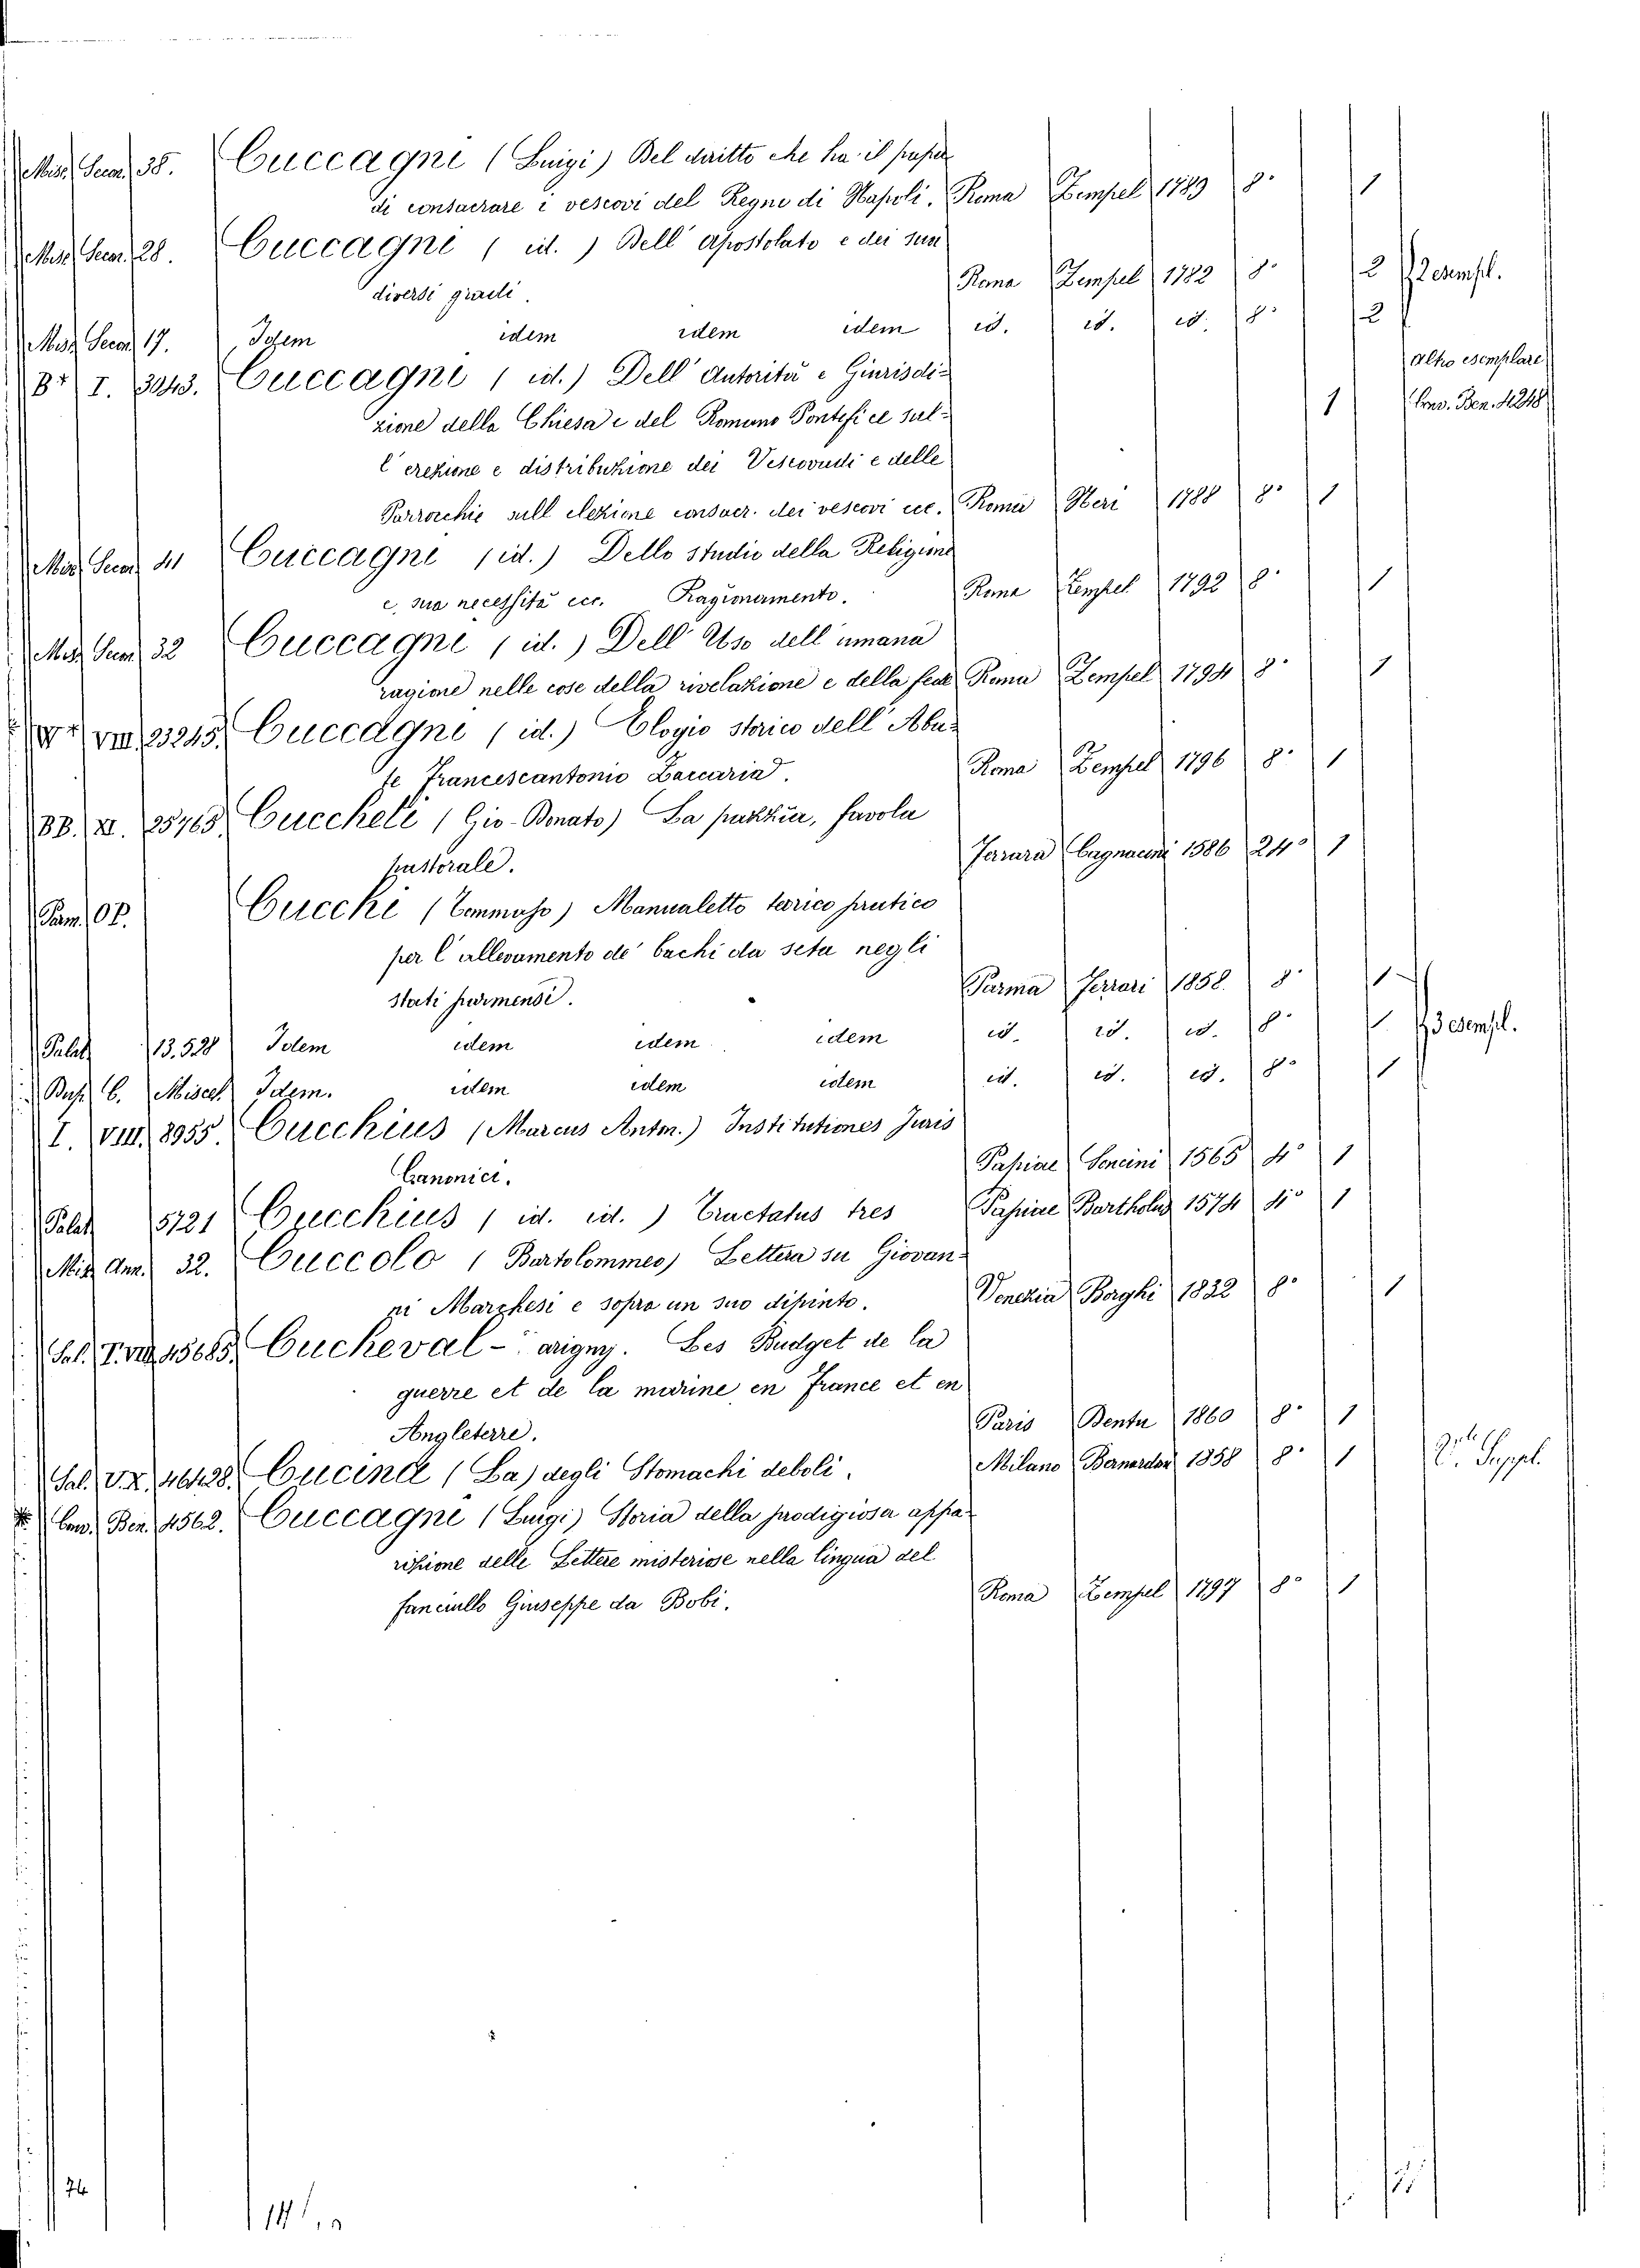 Misc. Secon. 38. Cuccagni (Luigi) Del diritto che ha il papa
di consacrare i vescovi del Regno di Napoli. Roma Zempel 1789 8° 1
Misc. Secon. 28. Cuccagni ( id. ) Dell' apostolato e dei suoi
diversi gradi. Roma Zempel 1782 8° 2 2 esempl.
Misc. Secon. 17. Idem idem idem idem id. id. id. 8° 2
B+ I. 3243. Cuccagni ( id. ) Dell' Autorità e Giurisdi- altro esemplare
zione della Chiesa e del Romano Pontefice sul- 1 Conv. Ben. 4248
l'erezione e distribuzione dei Vescovadi e delle
Parrocchie sull elezione consacr. dei vescovi ecc. Roma Neri 1788 8° 1
Misc. Secon. 41 Cuccagni ( id. ) Dello studio della Religione
e sua necessità ecc. Ragionamento. Roma Zempel 1792 8° 1
Misc. Secon. 32 Cuccagni ( id. ) Dell' Uso dell' umana
ragione nelle cose della rivelazione e della fede Roma Zempel 1794 8° 1
VIII. 23245. Cuccagni ( id. ) Elogio storico dell' Aba-
te Francescantonio Zaccaria. Roma Zempel 1796 8° 1
BB. XI. 25765. Cuccheti (Gio. Donato) La pazzia, favola
pastorale. Ferrara Cagnacini 1586 24° 1
Pam. Cucchi (Tommaso) Manualetto teorico pratico
per l'allevamento de' bachi da seta negli
stati parmensi. Parma Ferrari 1858. 8° 1
Palat. 13.528 Idem idem idem idem id. id. id. 8° 3 esempl.
Miscel. Idem. idem idem idem id. id. id. 8° 1
I. VIII. 8955. Cucchius (Marcus Anton.) Institutiones Juris
Canonici. Papiae Soncini 1565 4° 1
Palat. 5721 Cucchius ( id. id. ) Tractatus tres Papiae Bartholus 1574 4° 1
Misc. Ann. 32. Cuccolo (Bartolommeo) Lettera su Giovan-
ni Marchesi e sopra un suo dipinto. Venezia Borghi 1832 8° 1
Sal. T. VIII. 45685. Cucheval-Clarigny. Les Budget de la
guerre et de la marine en France et en
Angleterre. Paris Dentu 1860 8° 1
Sal. V. X. 46428. Cucina (La) degli Stomachi deboli. Milano Bernardon 1858 8° 1 Suppl.
Conv. Ben. 4562. Cuccagni (Luigi) Storia della prodigiosa appa-
rizione delle Lettere misteriose nella lingua del
fanciullo Giuseppe da Bobi. Roma Zempel 1797 8° 1